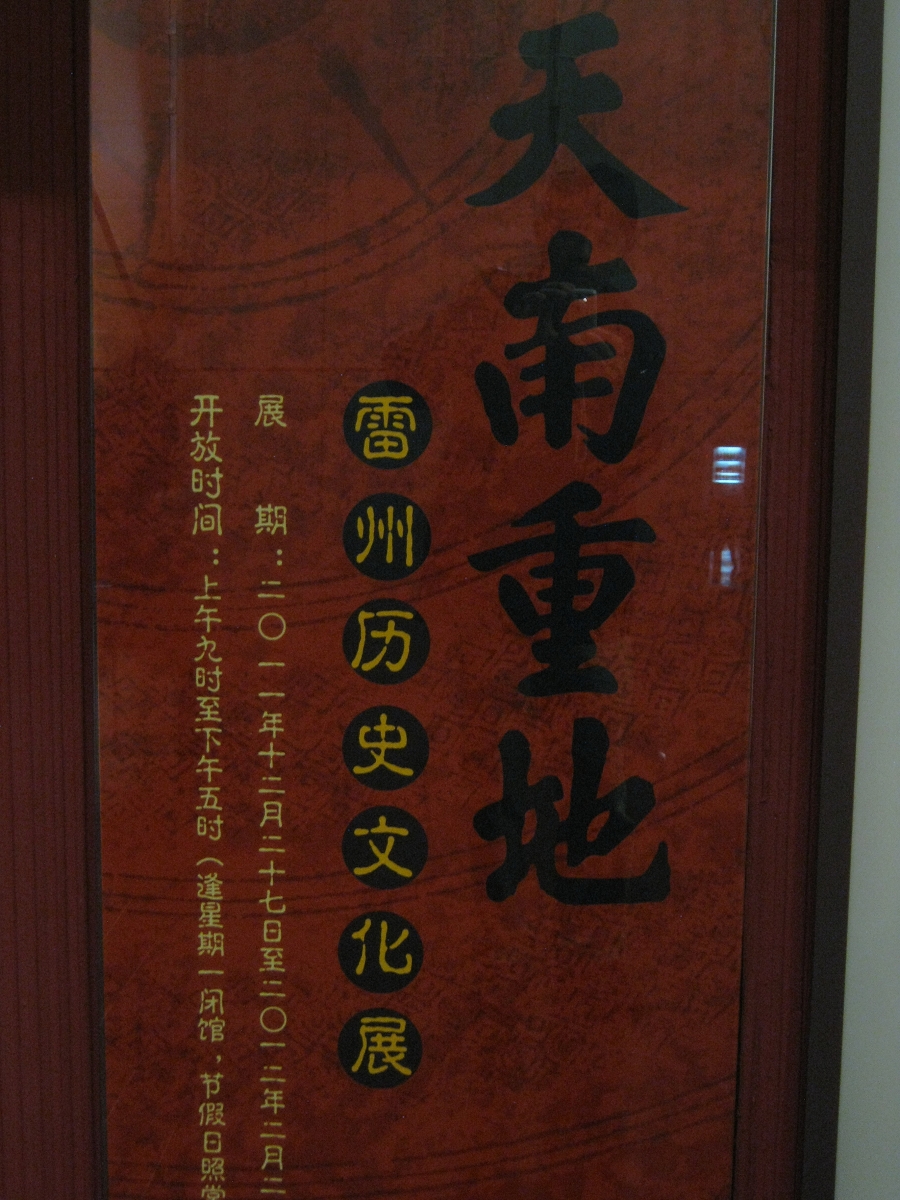 天南重地
雷州历史文化展
展期：二〇一一年十二月二十七日至二〇一二年二月二
开放时间：上午九时至下午五时（逢星期一闭馆，节假日照常